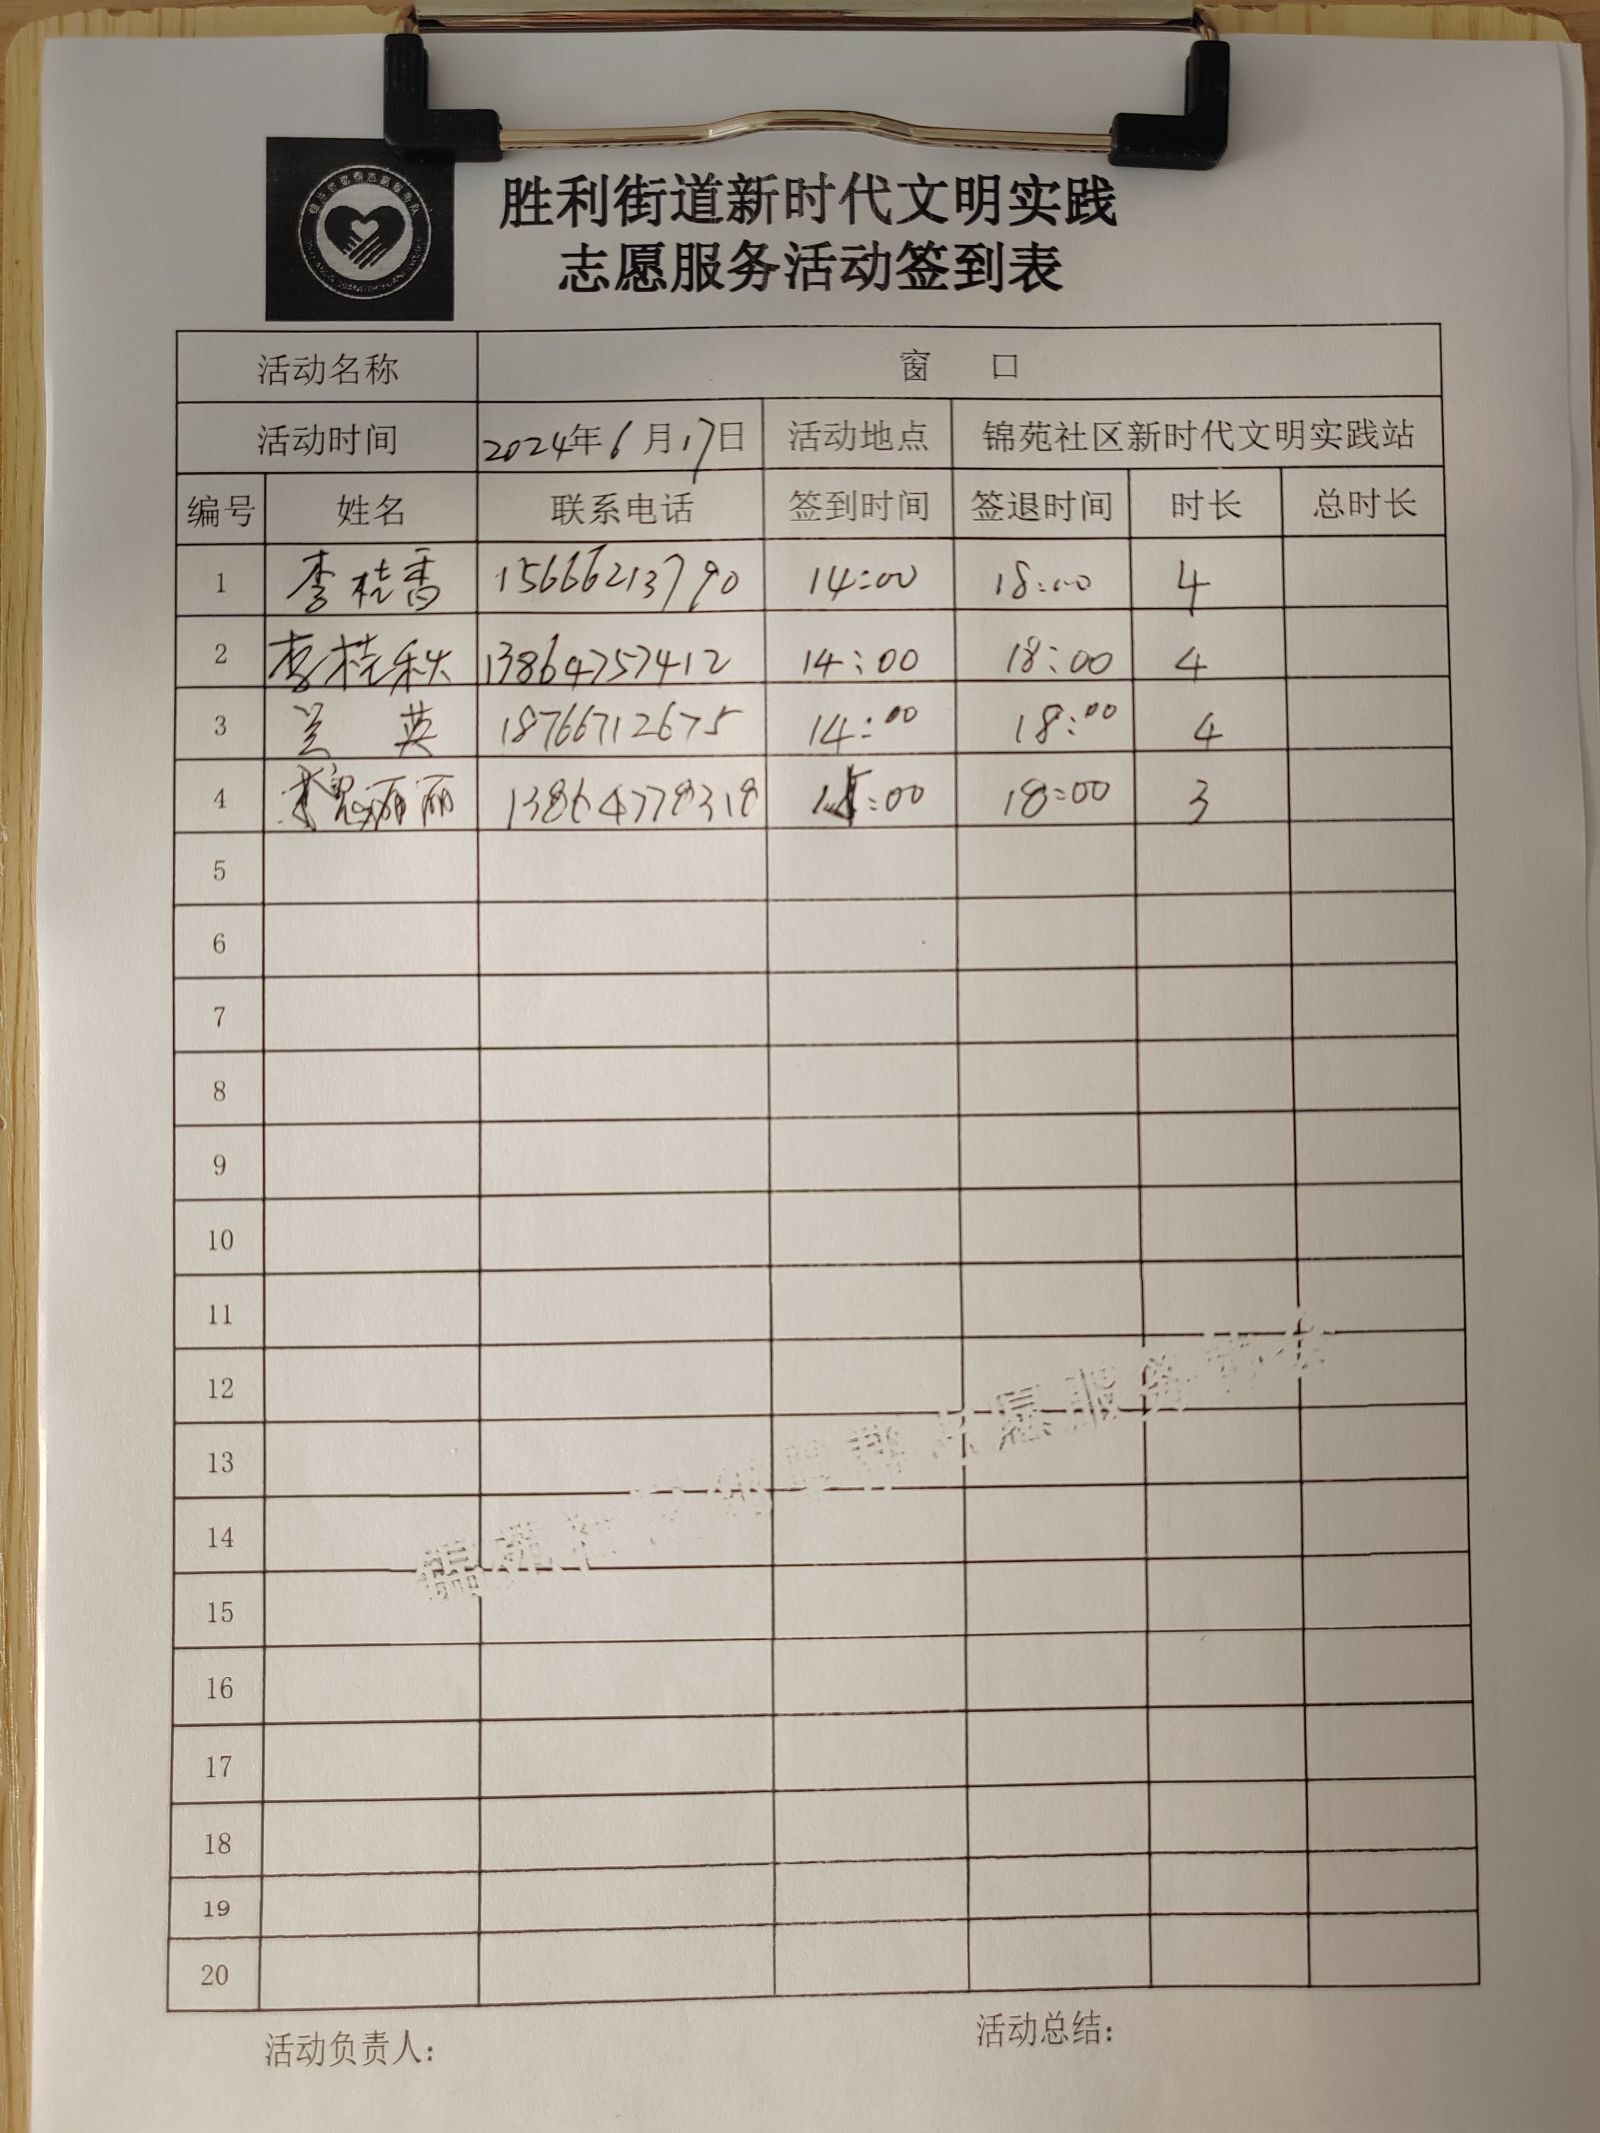 胜利街道新时代文明实践
志愿服务活动签到表
活动名称 窗 口
活动时间 2024年6月17日 活动地点 锦苑社区新时代文明实践站
编号 姓名 联系电话 签到时间 签退时间 时长 总时长
1 李桂香 15666213790 14:00 18:00 4
2 李桂秋 13864757412 14:00 18:00 4
3 兰英 18766712675 14:00 18:00 4
4 丽丽 13864778318 15:00 18:00 3
5
6
7
8
9
10
11
12
13
14
15
16
17
18
19
20
活动负责人: 活动总结: